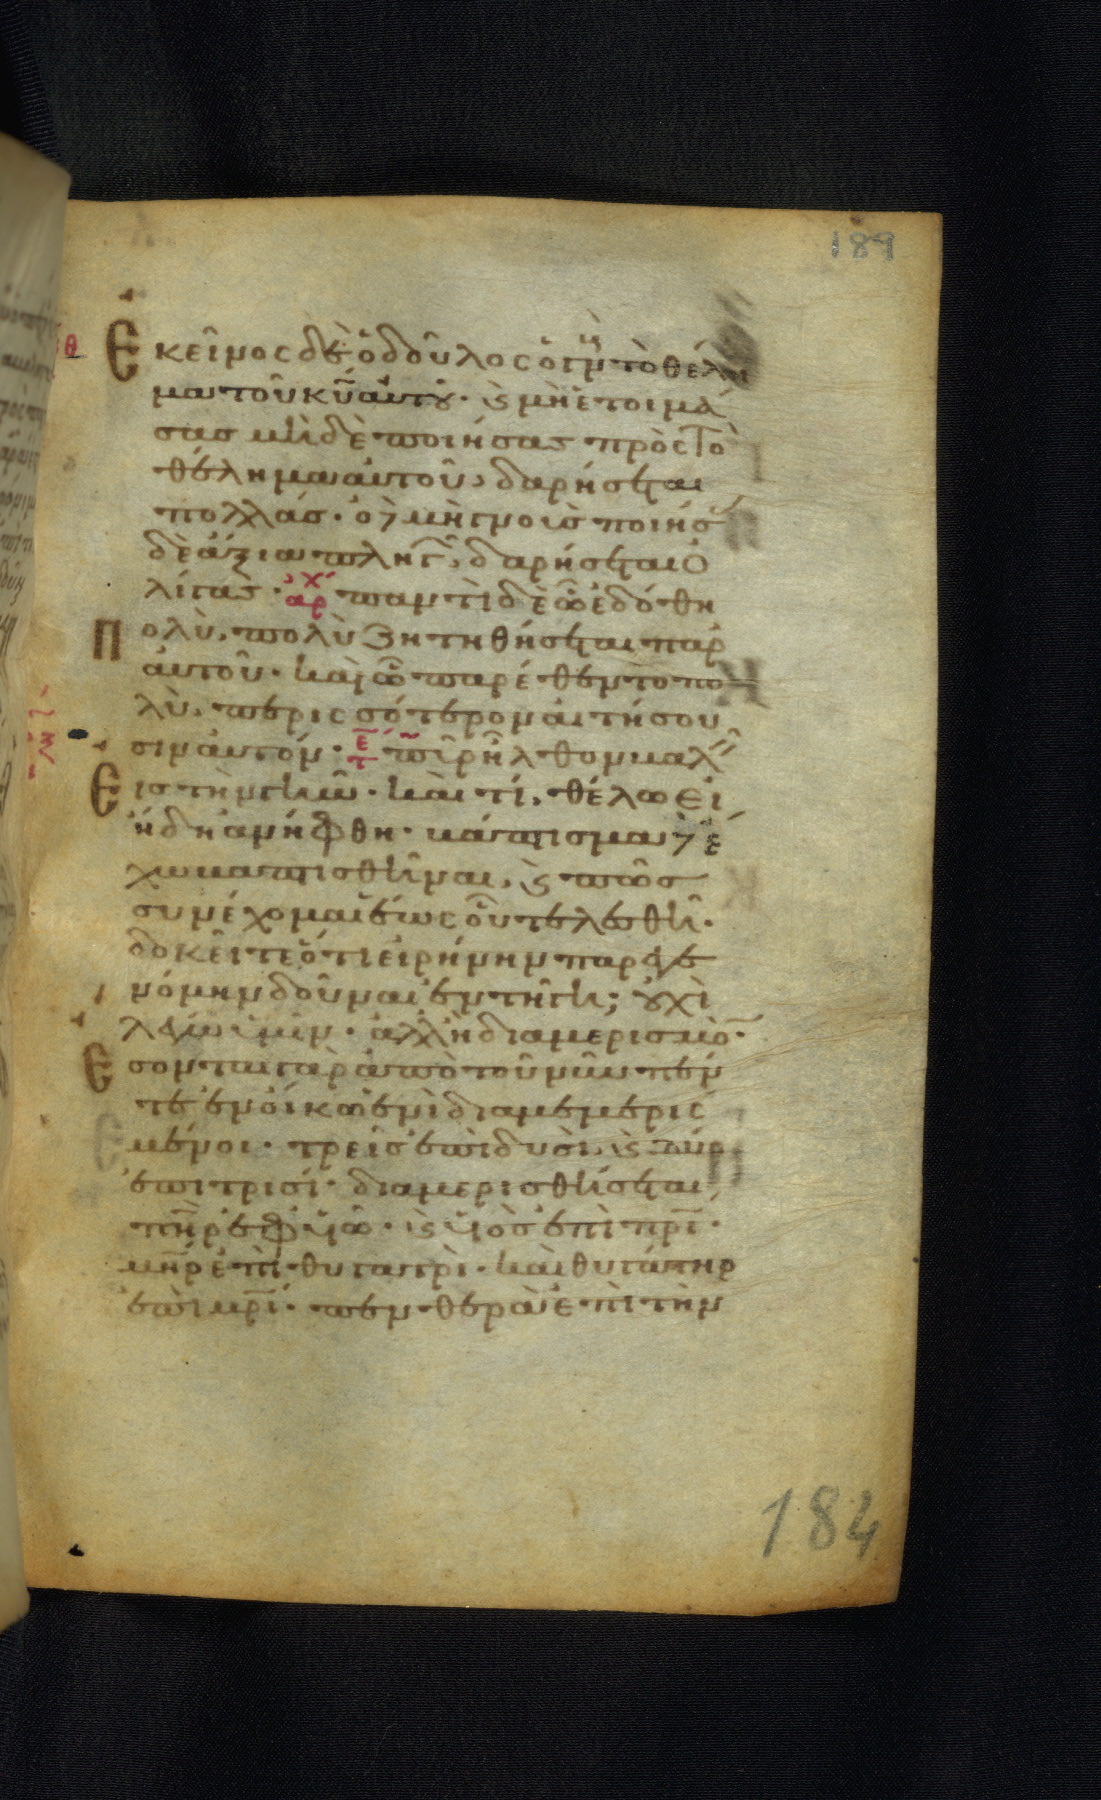 189
Ἐκεῖνος δὲ ὁ δοῦλος ὁ γν̀ τὸ θέλη
μα τοῦ κυ̅ αὐτοῦ · ϗ μὴ ἑτοιμά
σας μηδὲ ποιήσας πρὸς τὸ
θέλημα αὐτοῦ, δαρήσεται
πολλάς · ὁ δὲ μὴ γνοὺς ποιήσ
δὲ ἄξια πληγ̑, δαρήσεται ὀ
λίγας · ἀρχ παντὶ δὲ ᾧ ἐδόθη
Πολὺ, πολὺ ζητηθήσεται παρ
αὐτοῦ · καὶ ᾧ παρέθεντο πο
λὺ, περισσότερον αἰτήσου
σιν αὐτόν · πῦρ ἦλθον βαλ
Εἰς τὴν γῆν · καὶ τί θέλω εἰ
ἤδη ἀνήφθη · βάπτισμα δὲ ἔ
χω βαπτισθῆναι, ϗ πῶς
συνέχομαι ἕως οὗ τελεσθῆ ·
δοκεῖτε ὅτι εἰρήνην παρεγε
νόμην δοῦναι ἐν τῆ γῆ; οὐχὶ
λέγω ὑμῖν · ἀλλ ἢ διαμερισμὸ ·
Ἔσονται γὰρ ἀπὸ τοῦ νῦν πέν
τε ἐν οἴκω ἑνὶ διαμεμερισ
μένοι · τρεῖς ἐπὶ δυσὶ, ϗ δύο
ἐπὶ τρισί · διαμερισθήσεται
πη̅ρ ἐφ υἱῶ · ϗ υἱὸς ἐπὶ πρι̅ ·
μη̅ρ ἐπὶ θυγατρὶ · καὶ θυγάτηρ
ἐπὶ μρι̅ · πενθερὰ ἐπὶ τὴν
184